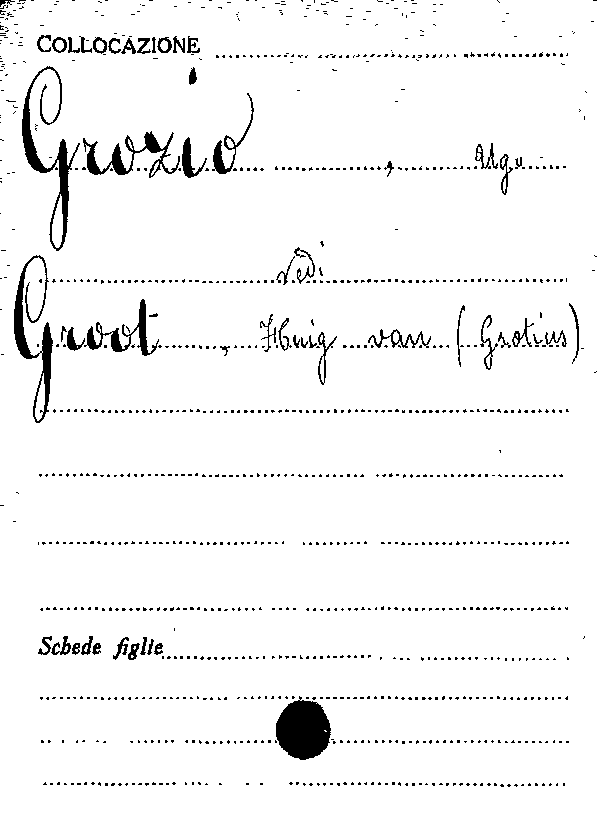 COLLOCAZIONE
Grozio, Ugo
vedi
Groot, Huig van (Grotius)
Schede figlie